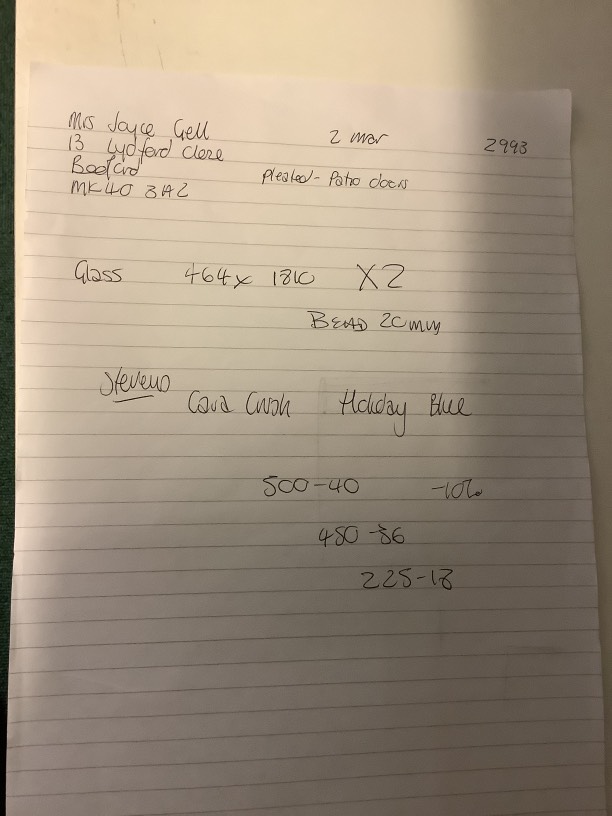 Mrs Joyce Gell 2 mar 2993
13 Lydford Close
Bedford Pleated - Patio doors
MK40 3AZ
Glass 464 x 1810 X2
BEAD 20mm
Stevens
Cava Crush Holiday Blue
500-40 -10%
450-36
225-18